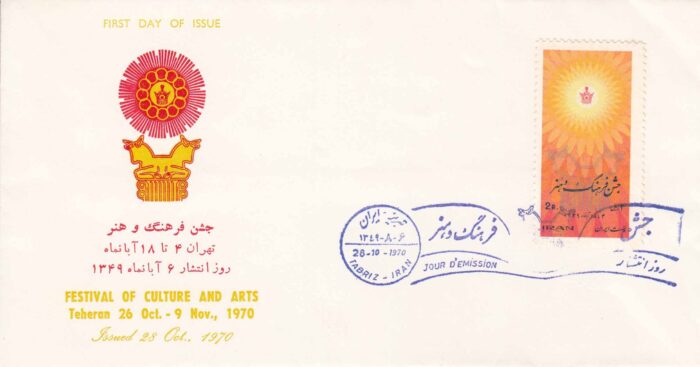 FIRST DAY OF ISSUE
جشن فرهنگ و هنر
تهران ۴ تا ۱۸ آبانماه
روز انتشار ۶ آبانماه ۱۳۴۹
FESTIVAL OF CULTURE AND ARTS
Teheran 26 Oct. - 9 Nov., 1970
Issued 28 Oct., 1970
جشن فرهنگ و هنر
2R.
IRAN
پست ایران
۱۳۴۹-۸-۶
28-10-1970
TABRIZ - IRAN
جشن فرهنگ و هنر
JOUR D'EMISSION
روز انتشار